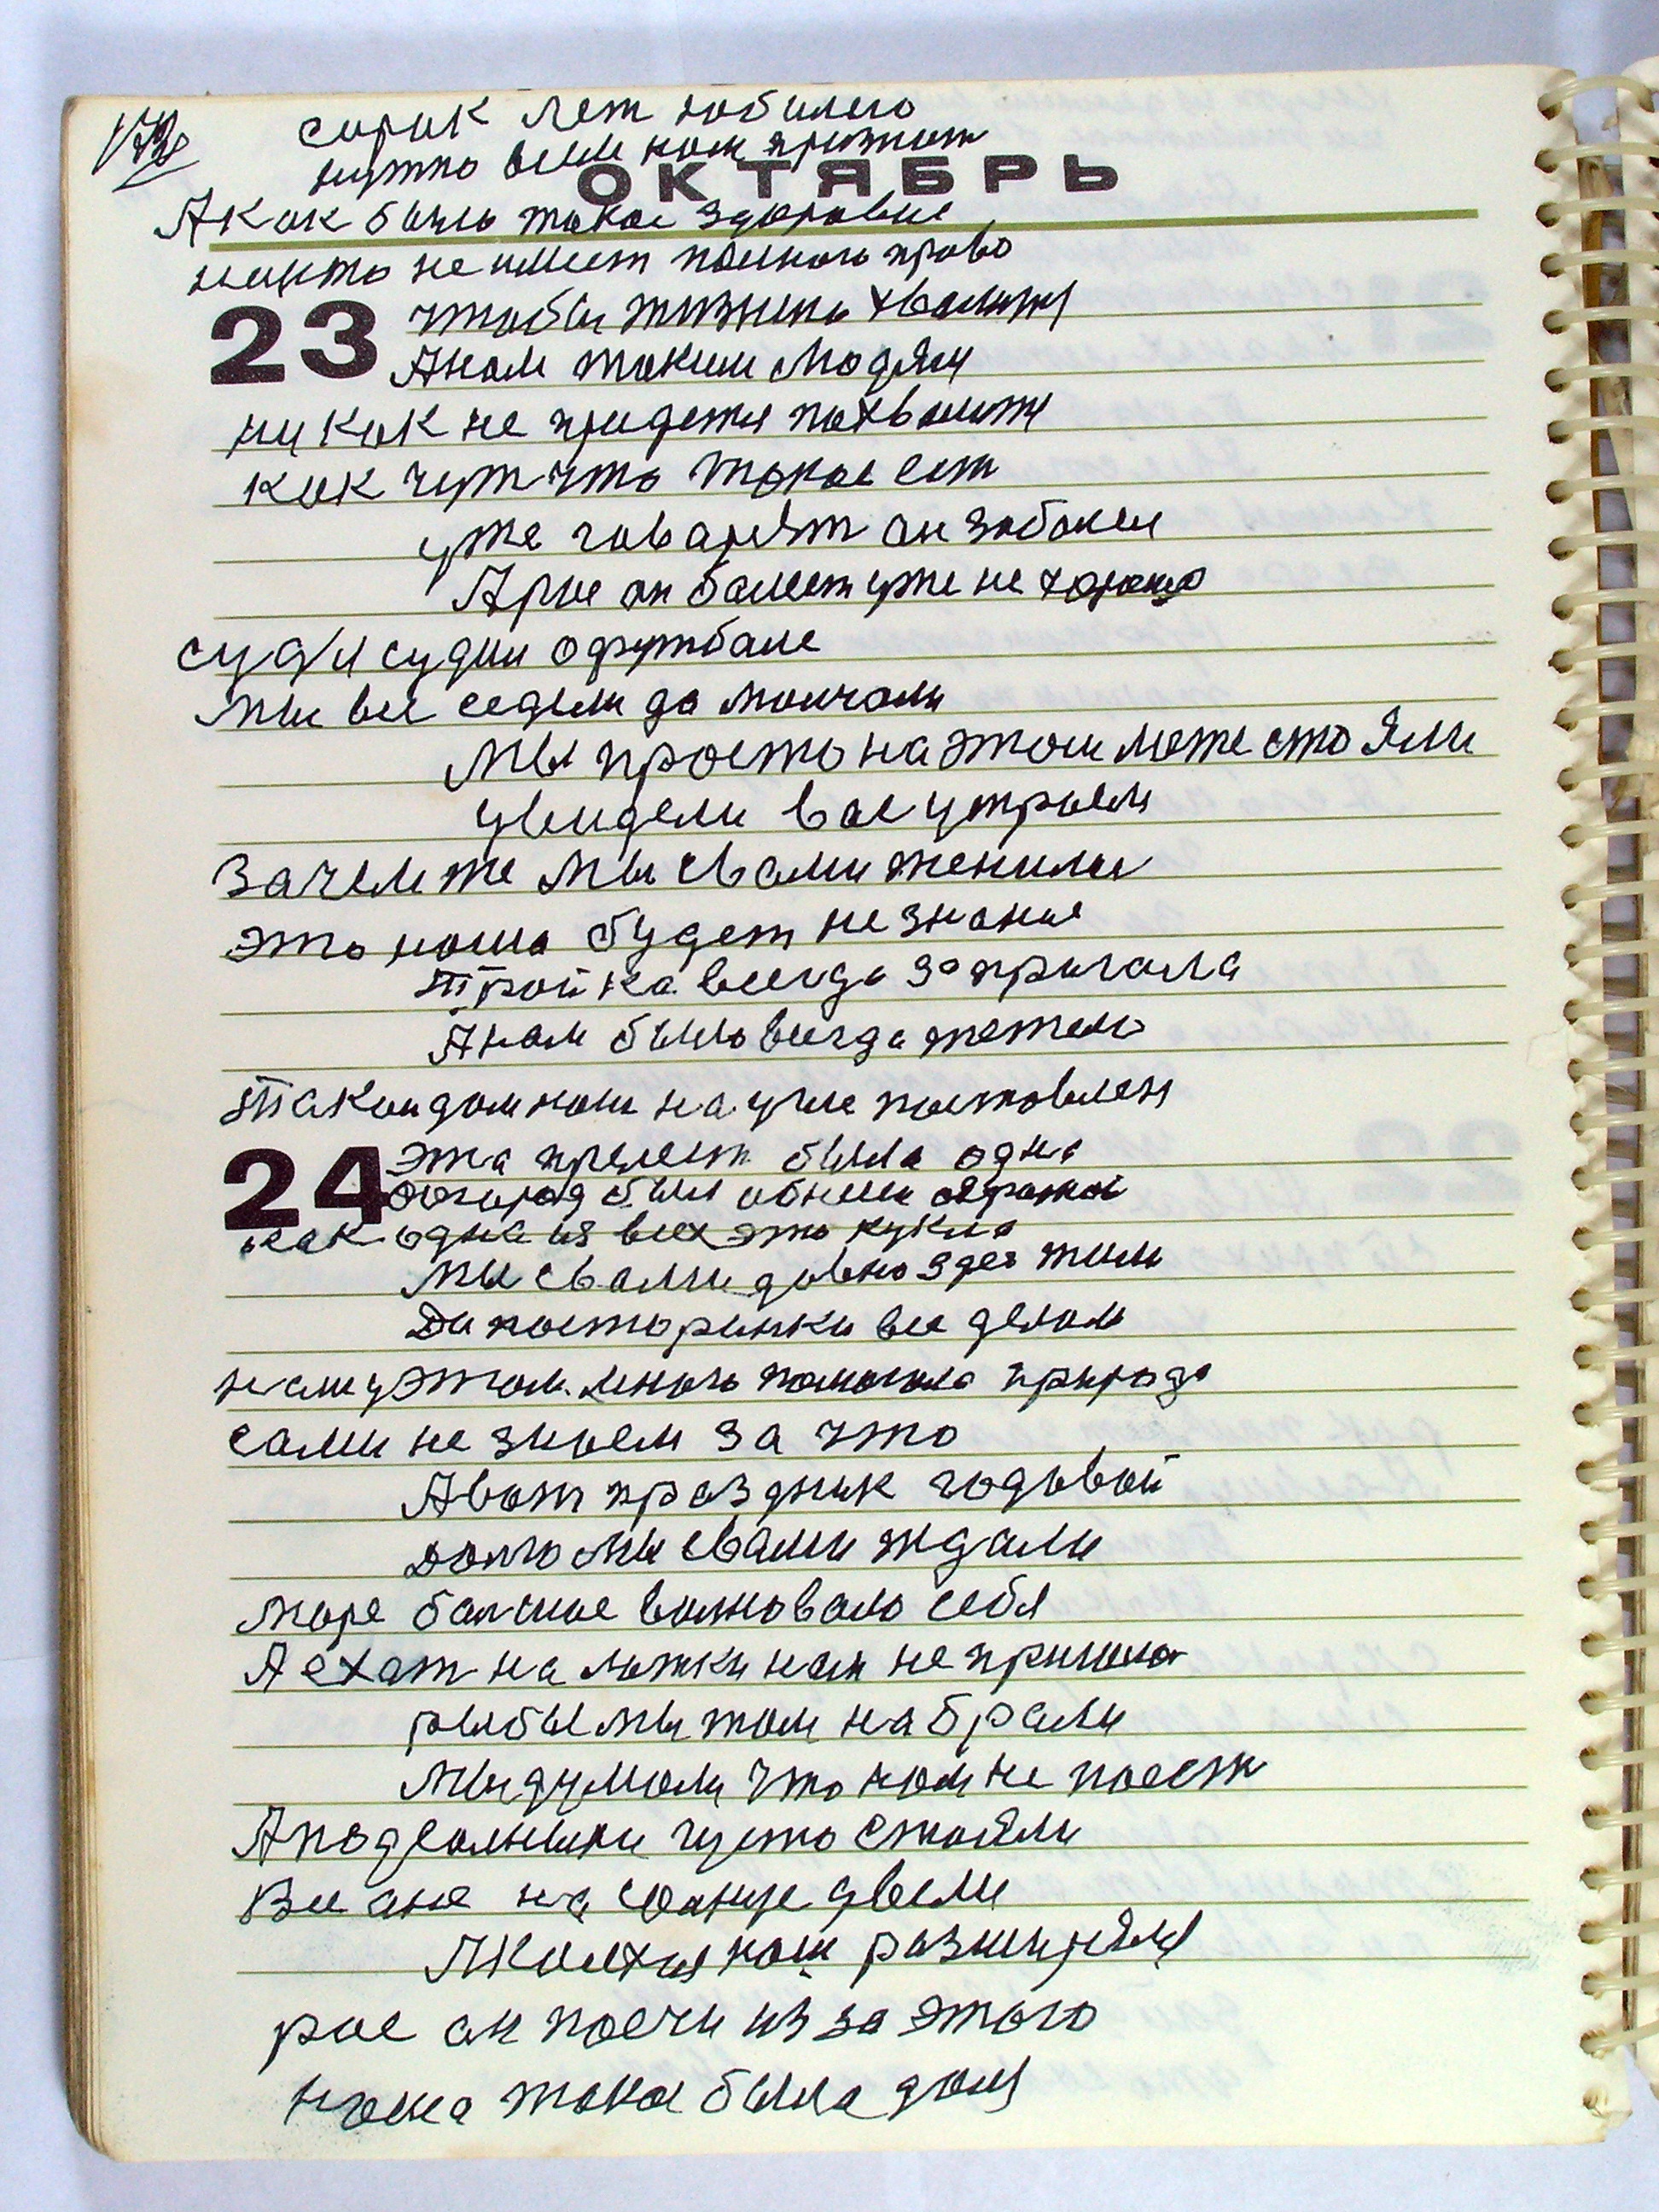 сорок лет юбилею
нужно всем нам признат
ОКТЯБРЬ
А как было такое здоровие
никто не имеет полного право
23 чтобы жизнию хвалится
А нам таким людям
ни как не придется похвалится
как чут что такое ест
уже говарят он заболел
А рас он болеет уже не хорошо
судя судил о футболе
мы все седели да молчали
мы просто на этом може стояли
увидели вас утроем
зачем же мы свами женились
это наша будет не знание
Тройка всегда запригала
А нам было всегда тежело
Такой дом нам на угле поставлен
24 эта прелест была одна
огород был обнесен
как одна из всех это кукла
мы свами давно здес жили
Да посторинки все делали
нам у этом много помогала природа
сами не знаем за что
А вот праздник годовой
Долго мы свами ждали
море большое волновало себя
А ехат на лотки нам не пришлос
рыбы мы там набрали
мы думали что нам не поест
А подсолнихи густо стояли
Все ане на солнце цвели
А колхоз наш разширялся
рас он поечи из за этого
наша така была доля